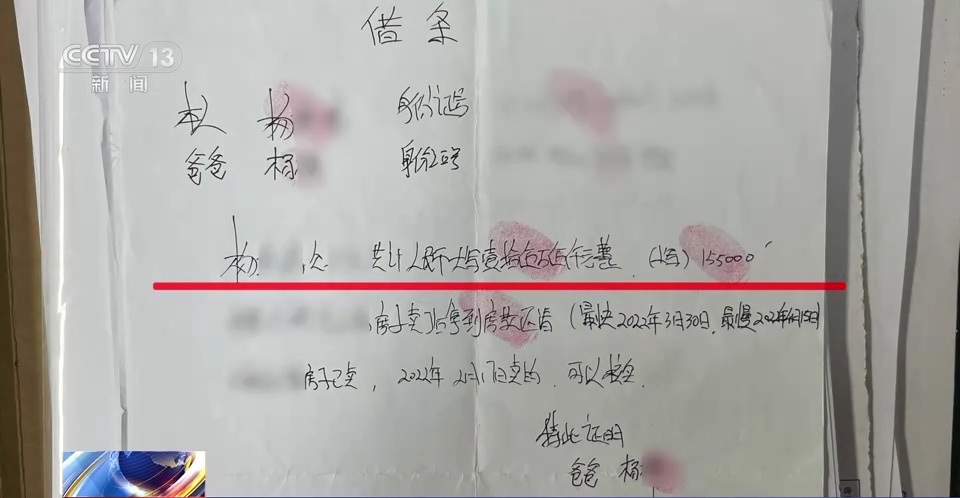 CCTV 13
新闻
借条
本人 杨 身份证号
爸爸 杨 身份证号
共计人民币大写壹拾伍万伍仟元整 (小写) 155000
房子卖后拿到房款还清 (最快2022年3月30日,最慢2022年4月15日)
房子已卖, 2022年2月17日卖的, 可以核查.
特此证明
爸爸 杨